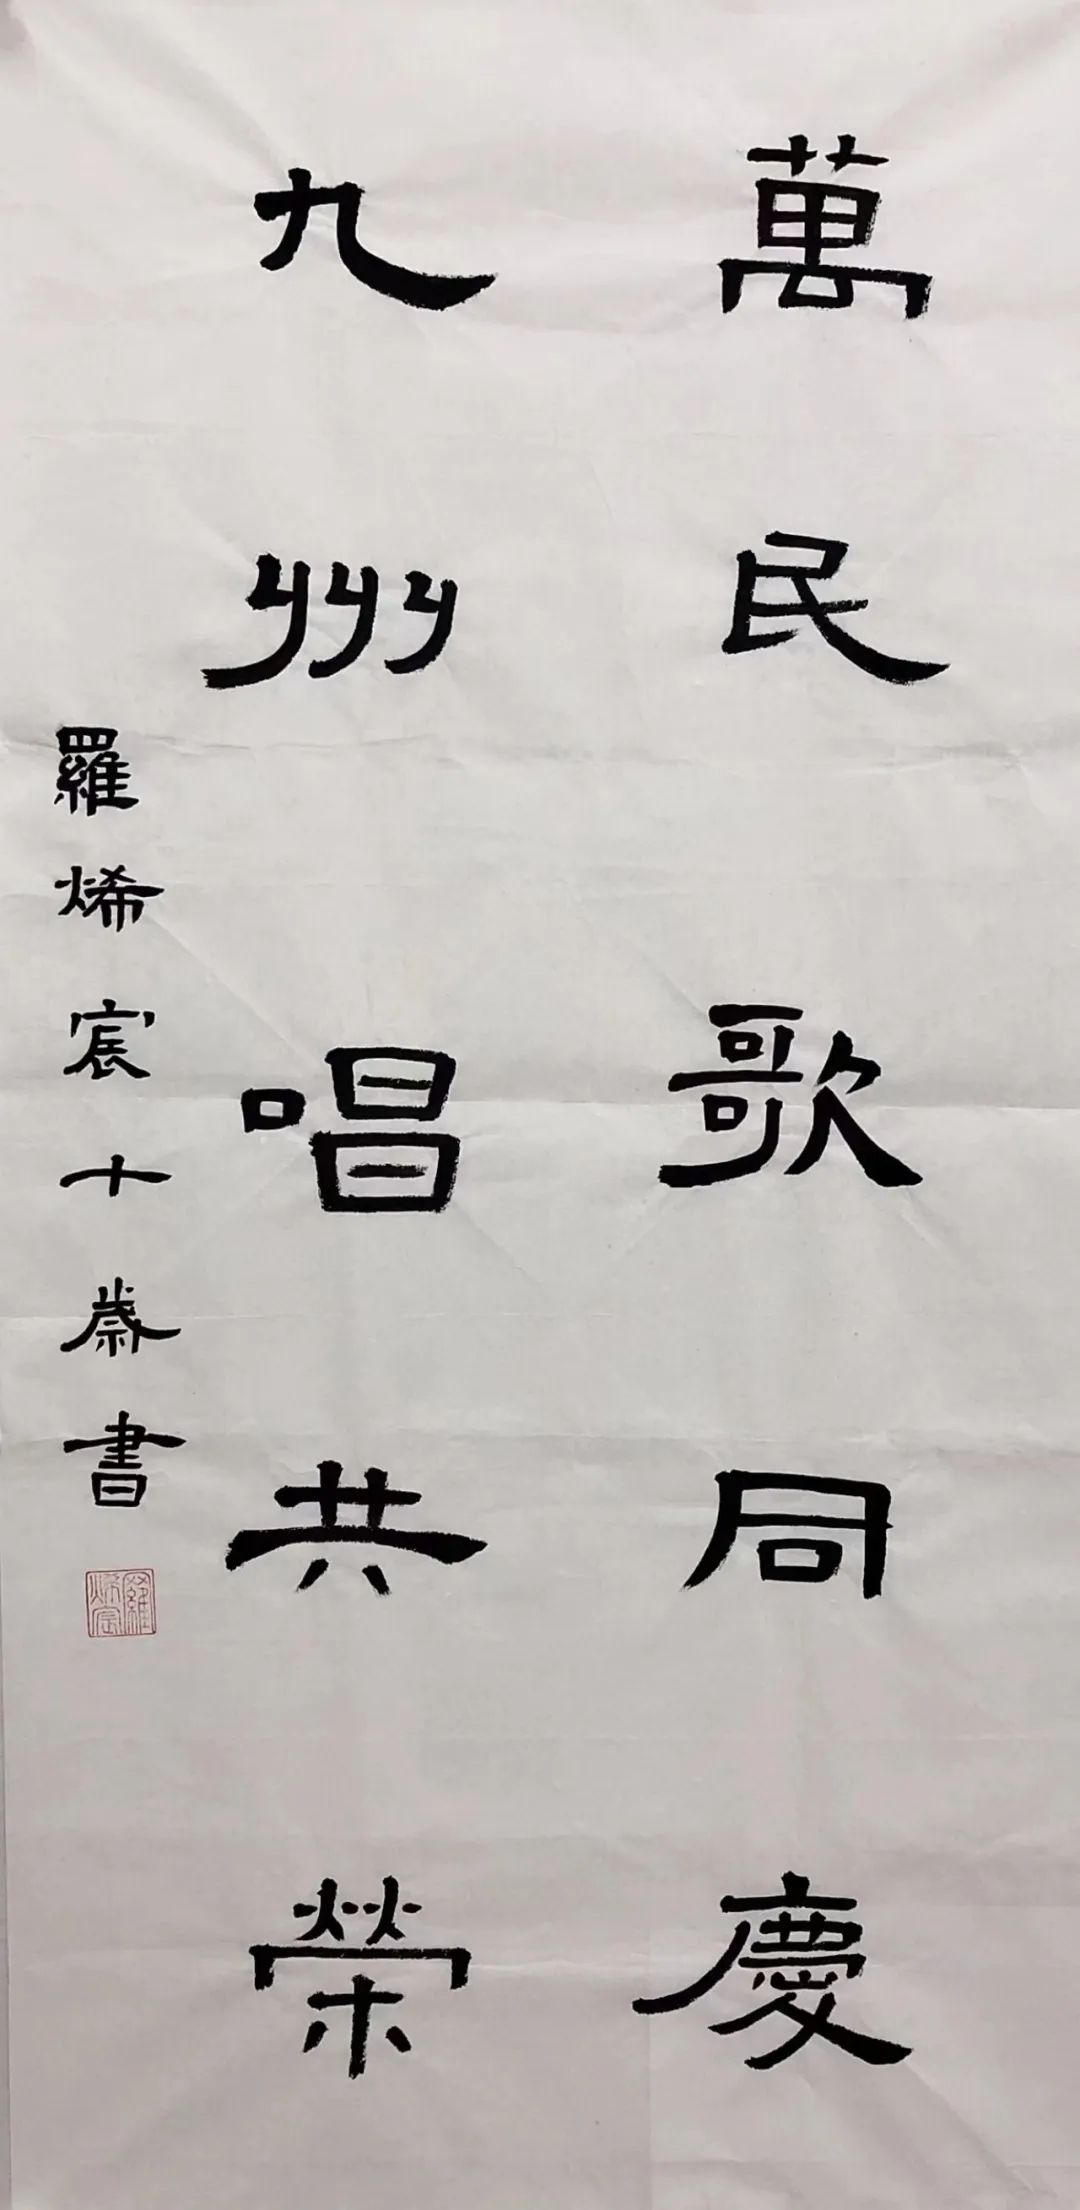 萬民歌同慶
九州唱共榮
羅烯宸十歲書
羅烯宸